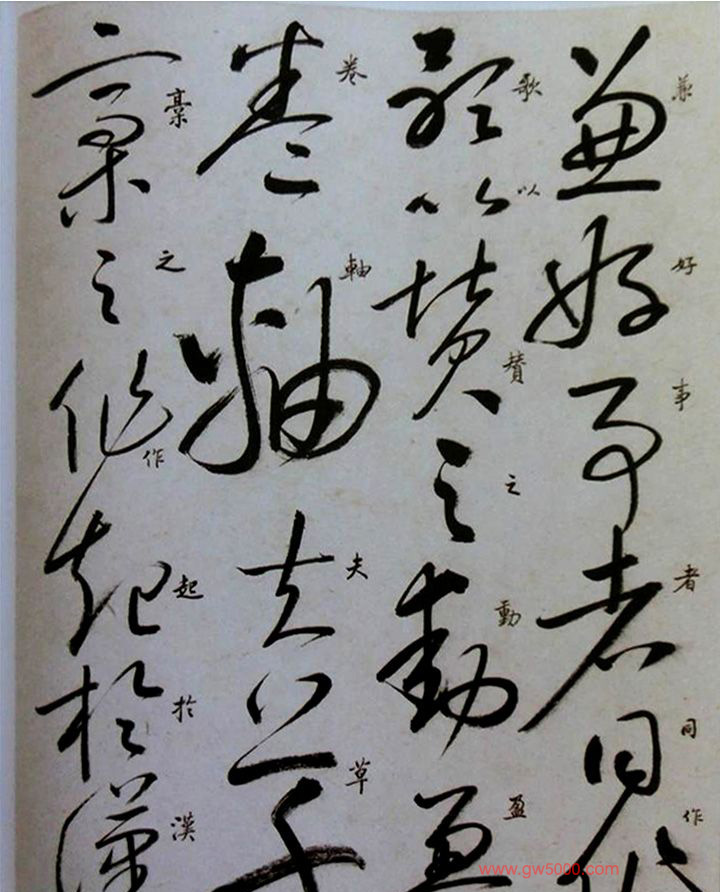 兼好事者同作
歌以賛之動盈
卷軸夫草
槀之作起於漢
www.gw5000.com